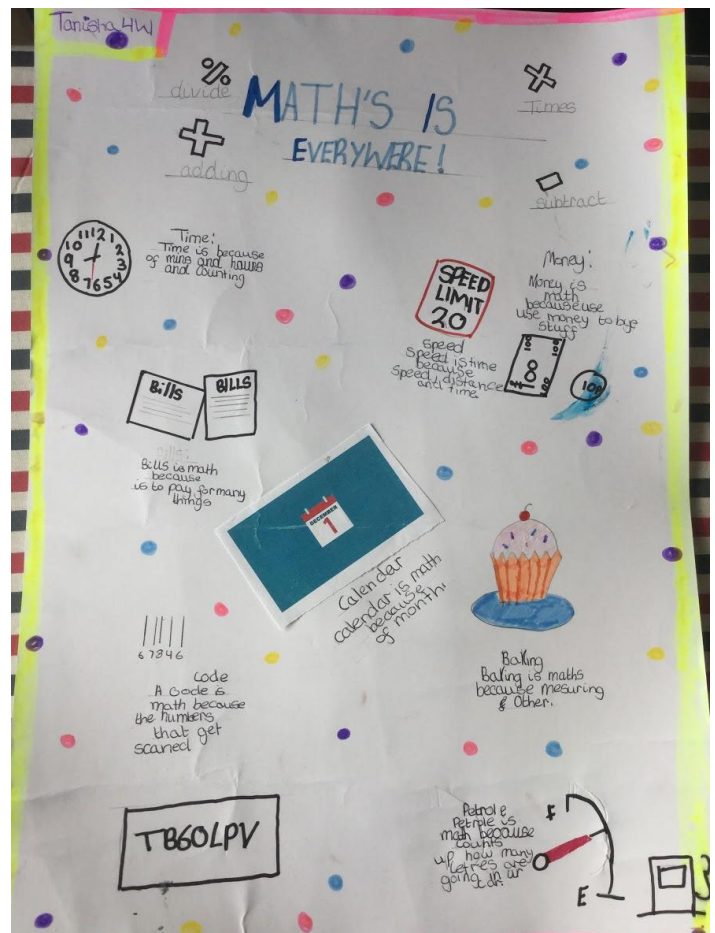 Tanisha 4W
divide
MATH'S IS
EVERYWERE!
Times
adding
subtract
11 12 1
10 2
9 3
8 7 6 5 4
Time:
Time is because
of mins and hours
and counting
SPEED
LIMIT
20
speed
Speed is time
because
speed, distance
and time
Money:
Money is
math
because use
use money to bye
stuff
100
100
100
100
100
Bills
BILLS
Bills:
Bills is math
because
is to pay for many
things
DECEMBER
1
Calendar
calendar is math
because
of month.
6 7 8 4 6
Code
A Code is
math because
the numbers
that get
scaned
Baking
Baking is maths
because mesuring
& Other.
TB60LPV
Petrole
Petrole is
math because
counts
up how many
letres are
going in ur
car.
F
E